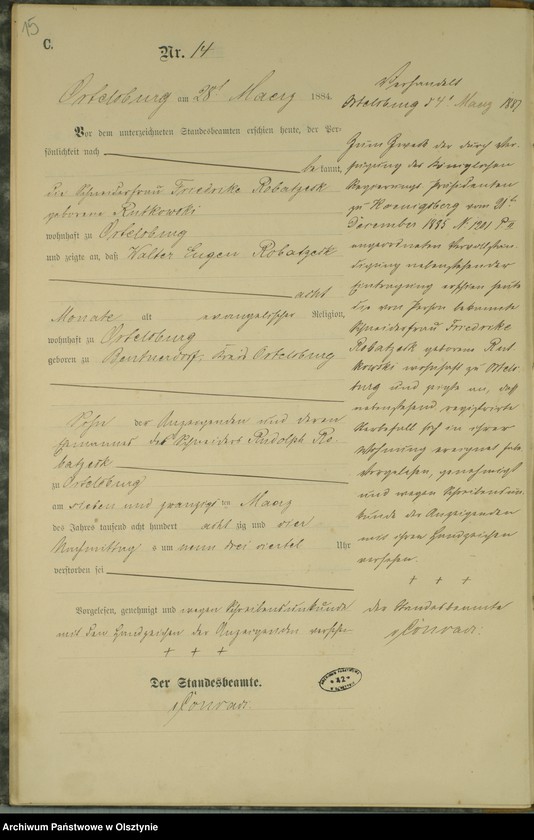 15
C.
Nr. 14
Ortelsburg am 28t Maerz 1884.
Vor dem unterzeichneten Standesbeamten erschien heute, der Per-
sönlichkeit nach
bekannt,
die Schneiderfrau Friedricke Robatzek
geborene Rutkowski
wohnhaft zu Ortelsburg
und zeigte an, daß Walter Eugen Robatzek
acht
Monate alt evangelischer Religion,
wohnhaft zu Ortelsburg
geboren zu Beutnerdorf, Kreis Ortelsburg
Sohn der Anzeigenden und deren
Ehemannes des Schneiders Rudolph Ro-
batzek
zu Ortelsburg
am sieben und zwanzigsten Maerz
des Jahres tausend acht hundert achtzig und vier
Nachmittag um neun drei viertel Uhr
verstorben sei
Vorgelesen, genehmigt und wegen Schreibensunkunde
mit den Handzeichen der Anzeigenden versehen
+ + +
Der Standesbeamte.
Conrad.
Verhandelt
Ortelsburg d 4t Maerz 1887
Zum Zweck der durch Ver-
fügung des Koeniglichen
Regierungs Präsidenten
zu Koenigsberg vom 21ten
December 1885 N
angeordneten Vervollstän-
digung nebenstehender
Eintragung erschien heute
die von Person bekannte
Schneiderfrau Friedricke
Robatzek geborene Rut-
kowski wohnhaft zu Ortels-
burg und zeigte an, daß
nebenstehend registrirte
Sterbefall sich in ihrer
Wohnung ereignet habe
Vorgelesen, genehmigt
und wegen Schreibensun-
kunde der Anzeigenden
mit ihren Handzeichen
versehen.
+ + +
der Standesbeamte
Conrad.
Archiwum Państwowe w Olsztynie